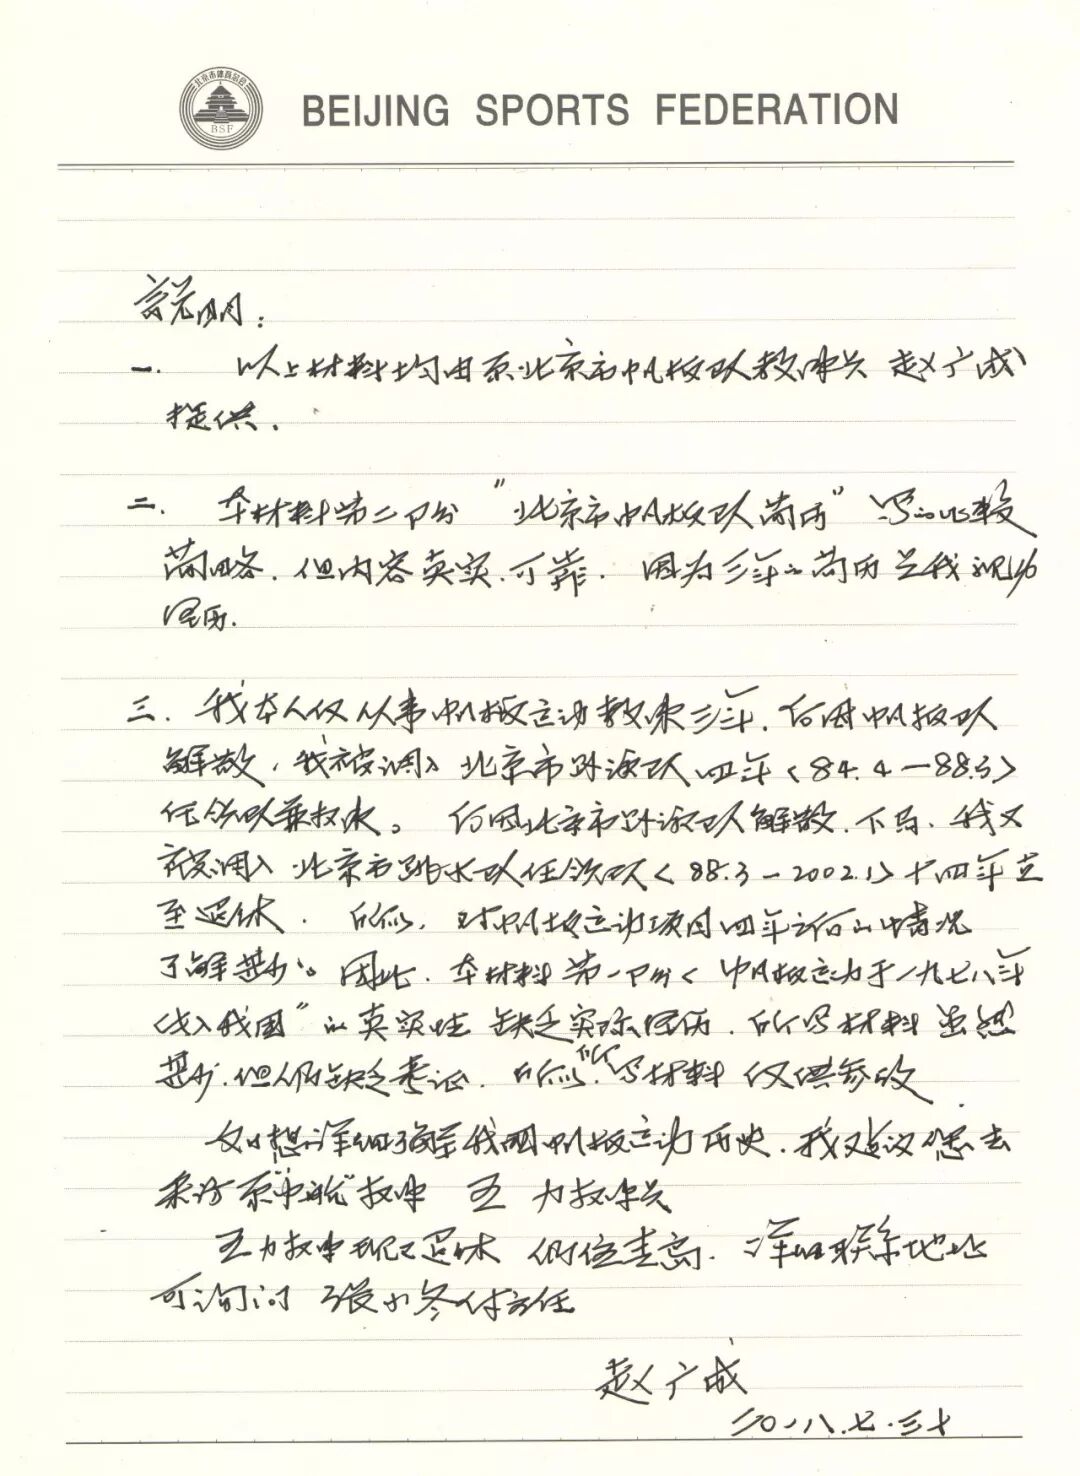 北京市体育总会
BSF
BEIJING SPORTS FEDERATION
说明:
一. 以上材料均由原北京市帆板队教练 赵广成
提供.
二. 本材料第二部分“北京市帆板队简历”写的比较
简略. 但内容真实.可靠. 因为三年的简历是我亲自
经历.
三. 我本人仅从事帆板运动教练三年. 后因帆板队
解散. 我被调入 北京市 队四年<84.4—88.3>
任领队兼教练。 后因北京市 队解散.下马. 我又
被调入 北京市跳水队任领队<88.3—2002.1>十四年直
至退休. 所以. 对帆板运动项目四年之后的情况
了解甚少。因此. 本材料第一部分<帆板运动于一九七八年
传入我国”的真实性 缺乏实际经历. 所写材料虽然
甚少.但仍缺乏考证. 所以.所写材料 仅供参考
如想详细了解我国帆板运动历史. 我建议您去
采访原 教练 王力教练
王力教练现已退休 居住青岛. 详细联系地址
可询问 张小冬付主任
赵广成
二〇一八.七.三十